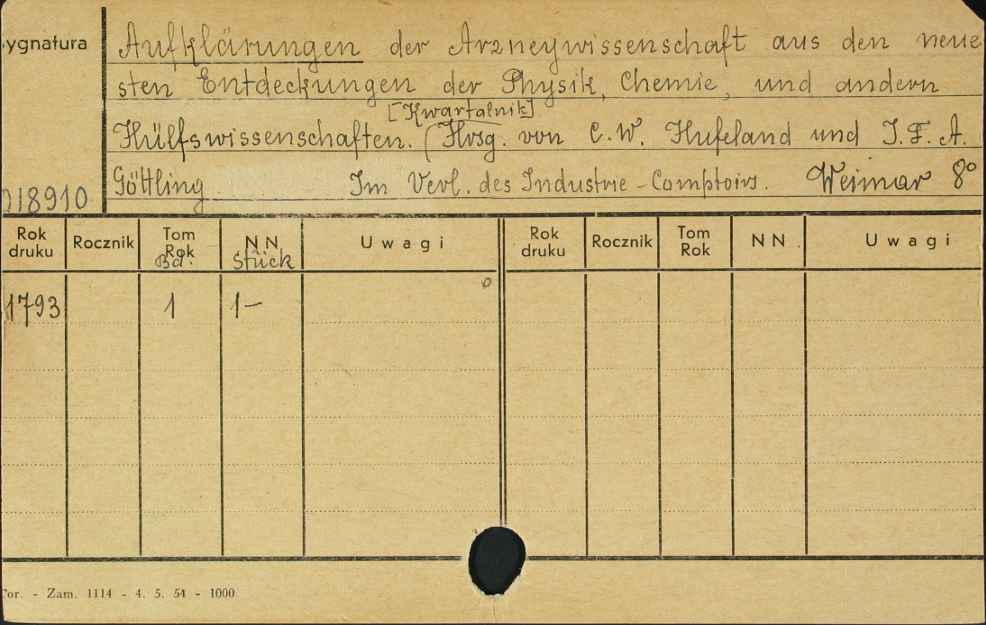 ygnatura
Aufklärungen der Arzneywissenschaft aus den neue
sten Entdeckungen der Physik, Chemie, und andern
[Kwartalnik]
Hülfswissenschaften. (Hrsg. von C. W. Hufeland und J. F. A.
Göttling Im Verl. des Industrie-Comptoirs. Weimar 8°
018910
Rok druku Rocznik Tom Rok Bd. NN Stück Uwagi Rok druku Rocznik Tom Rok NN Uwagi
1793 1 1-
or. - Zam. 1114 - 4. 5. 54 - 1000